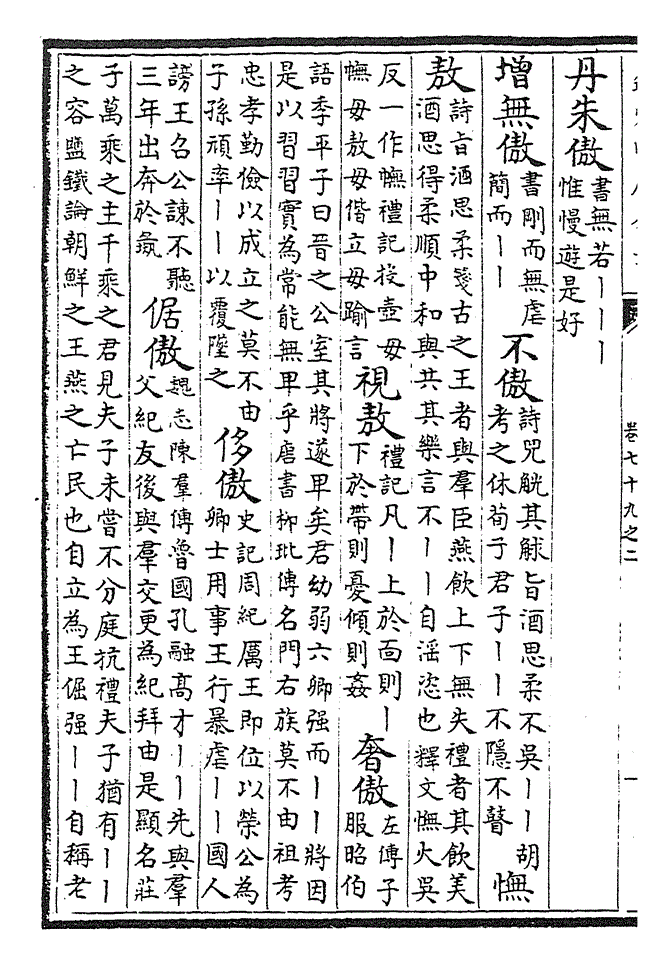 卷七十九之二
一
丹朱傲
書無若丨丨丨
惟慢遊是好
增無傲
書剛而無虐
簡而丨丨
不傲
詩兕觥其觩旨酒思柔不吳丨丨胡
考之休荀子君子丨丨不隱不瞽
憮
敖
詩旨酒思柔箋古之王者與羣臣燕飲上下無失禮者其飲美
酒思得柔順中和與共其樂言不丨丨自淫恣也釋文憮火吳
反一作幠禮記投壺毋
幠毋敖毋偕立毋踰言
視敖
禮記凡丨上於面則丨
下於帶則憂傾則姦
奢傲
左傳子
服昭伯
語季平子曰晉之公室其將遂卑矣君幼弱六卿强而丨丨將因
是以習習實為常能無卑乎唐書柳玭傳名門右族莫不由祖考
忠孝勤儉以成立之莫不由
子孫頑率丨丨以覆墜之
侈傲
史記周紀厲王即位以榮公為
卿士用事王行暴虐丨丨國人
謗王召公諫不聽
三年出奔於彘
倨傲
魏志陳羣傳魯國孔融高才丨丨先與羣
父紀友後與羣交更為紀拜由是顯名莊
子萬乘之主千乘之君見夫子未嘗不分庭抗禮夫子猶有丨丨
之容鹽鐵論朝鮮之王燕之亡民也自立為王倔强丨丨自稱老